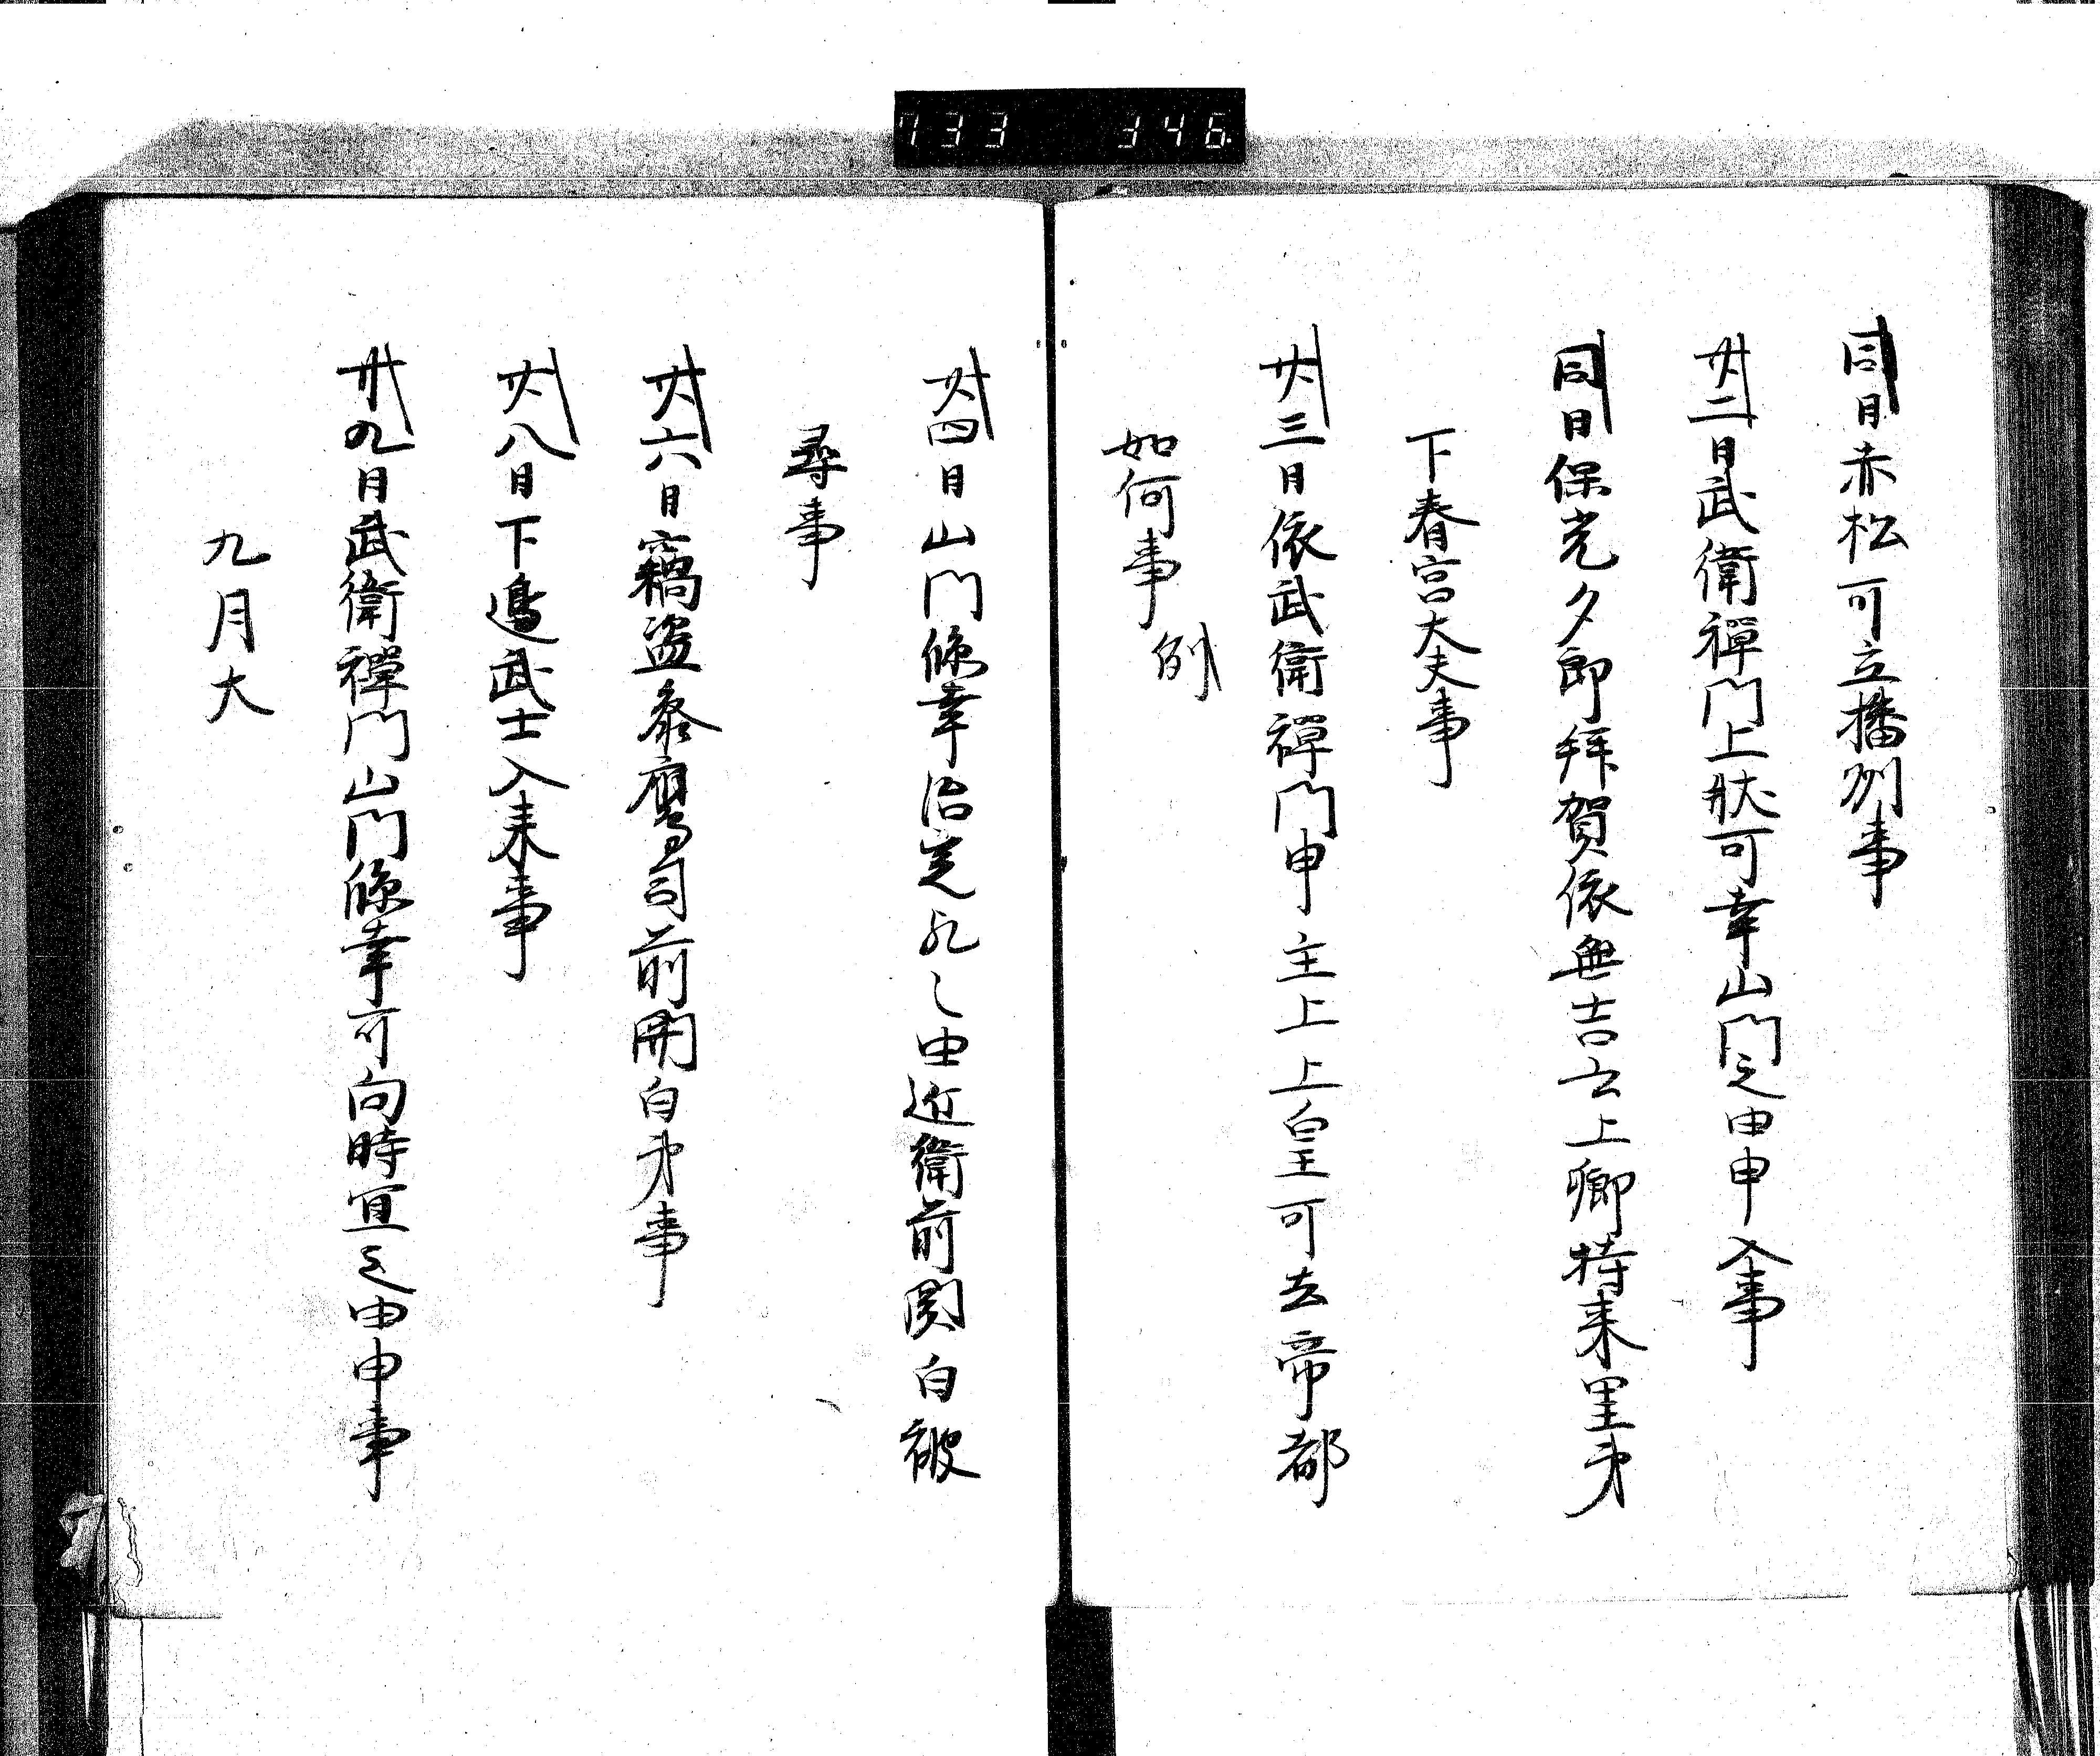 733 346
同日赤松可立播州事
廿二日武衛禅門上状可幸山門之由申入事
同日保光夕郎拝賀依無吉云上卿持来里第
下春宮大夫事
廿三日依武衛禅門申主上上皇可去帝都
如何事 例
廿四日山門臨幸治定歟之由近衛前関白被
尋事
廿六日窃盗参鷹司前関白第事
廿八日下邊武士入来事
廿九日武衛禅門山門臨幸可向時宜之由申事
九月大